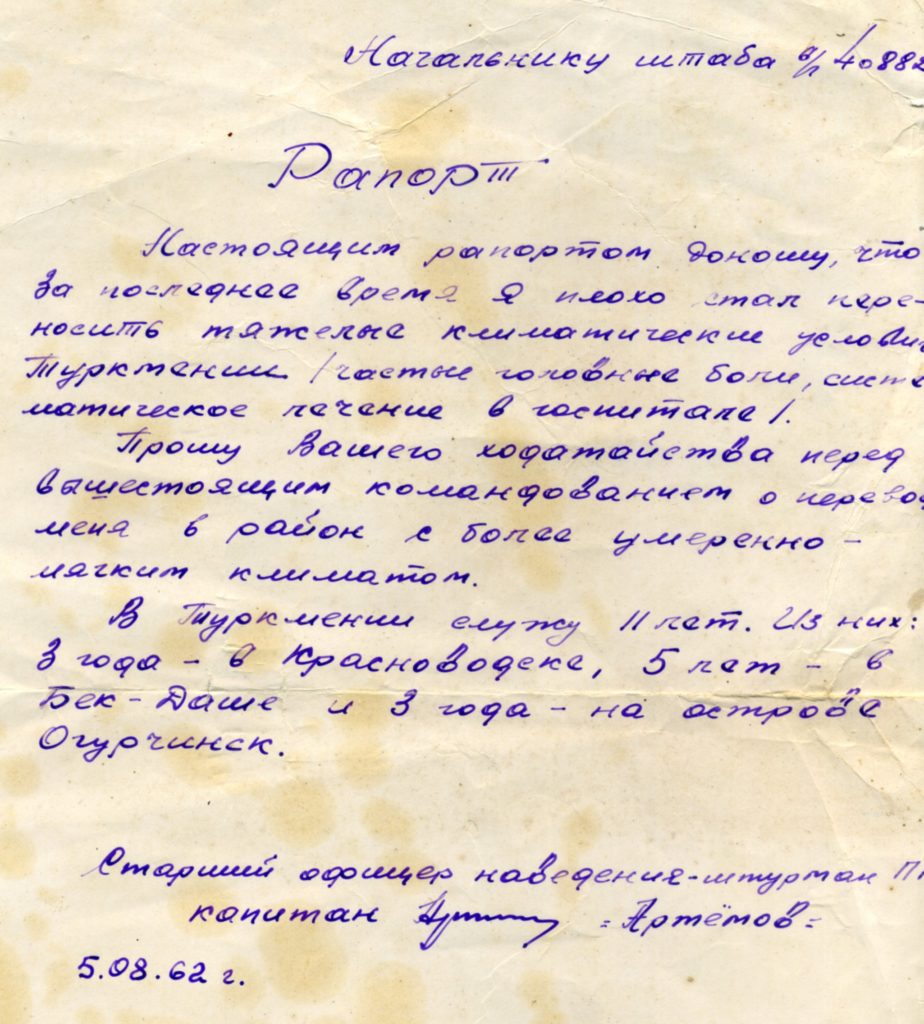 Начальнику штаба в/ч 40882
Рапорт
Настоящим рапортом доношу, что
за последнее время я плохо стал пере-
носить тяжелые климатические услови
Туркмении /частые головные боли, систе
матическое лечение в госпитале/.
Прошу Вашего ходатайства перед
вышестоящим командованием о перевод
меня в район с более умеренно-
мягким климатом.
В Туркмении служу 11 лет. Из них:
3 года - в Красноводске, 5 лет - в
Бек-Даше и 3 года - на острове
Огурчинск.
Старший офицер наведения-штурман П
капитан =Артёмов=
5.08.62 г.